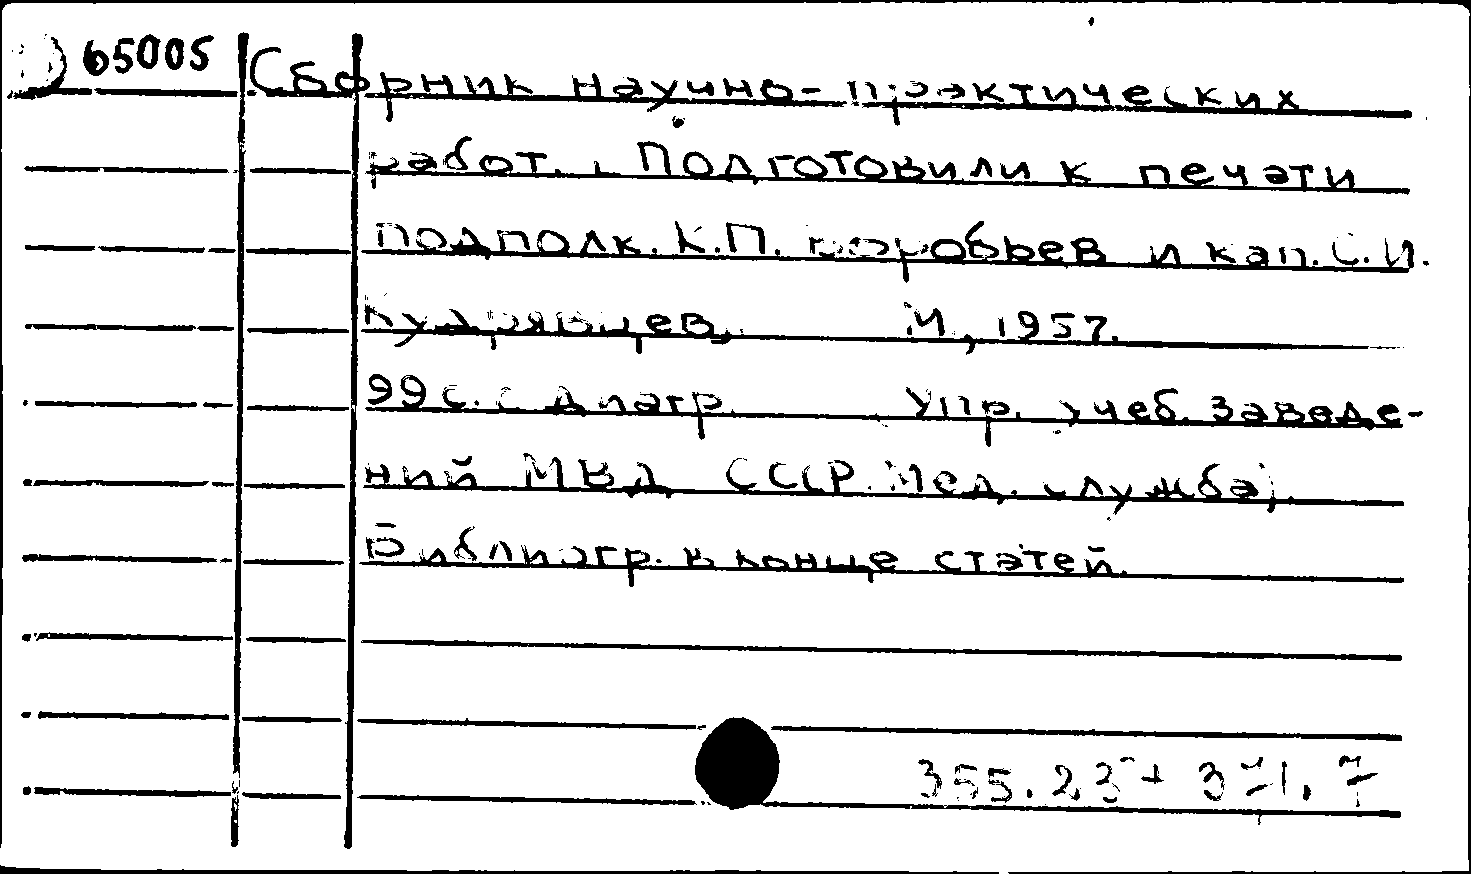 65005 Сборник научно-практических
работ. Подготовили к печати
подполк. К.П. Воробьев и кап. С.И.
Кудрявцев. М., 1957.
99 с. с диагр. Упр. учеб. заведе-
ний МВД СССР. Мед. служба).
Библиогр. в конце статей.
355.23 + 371.7